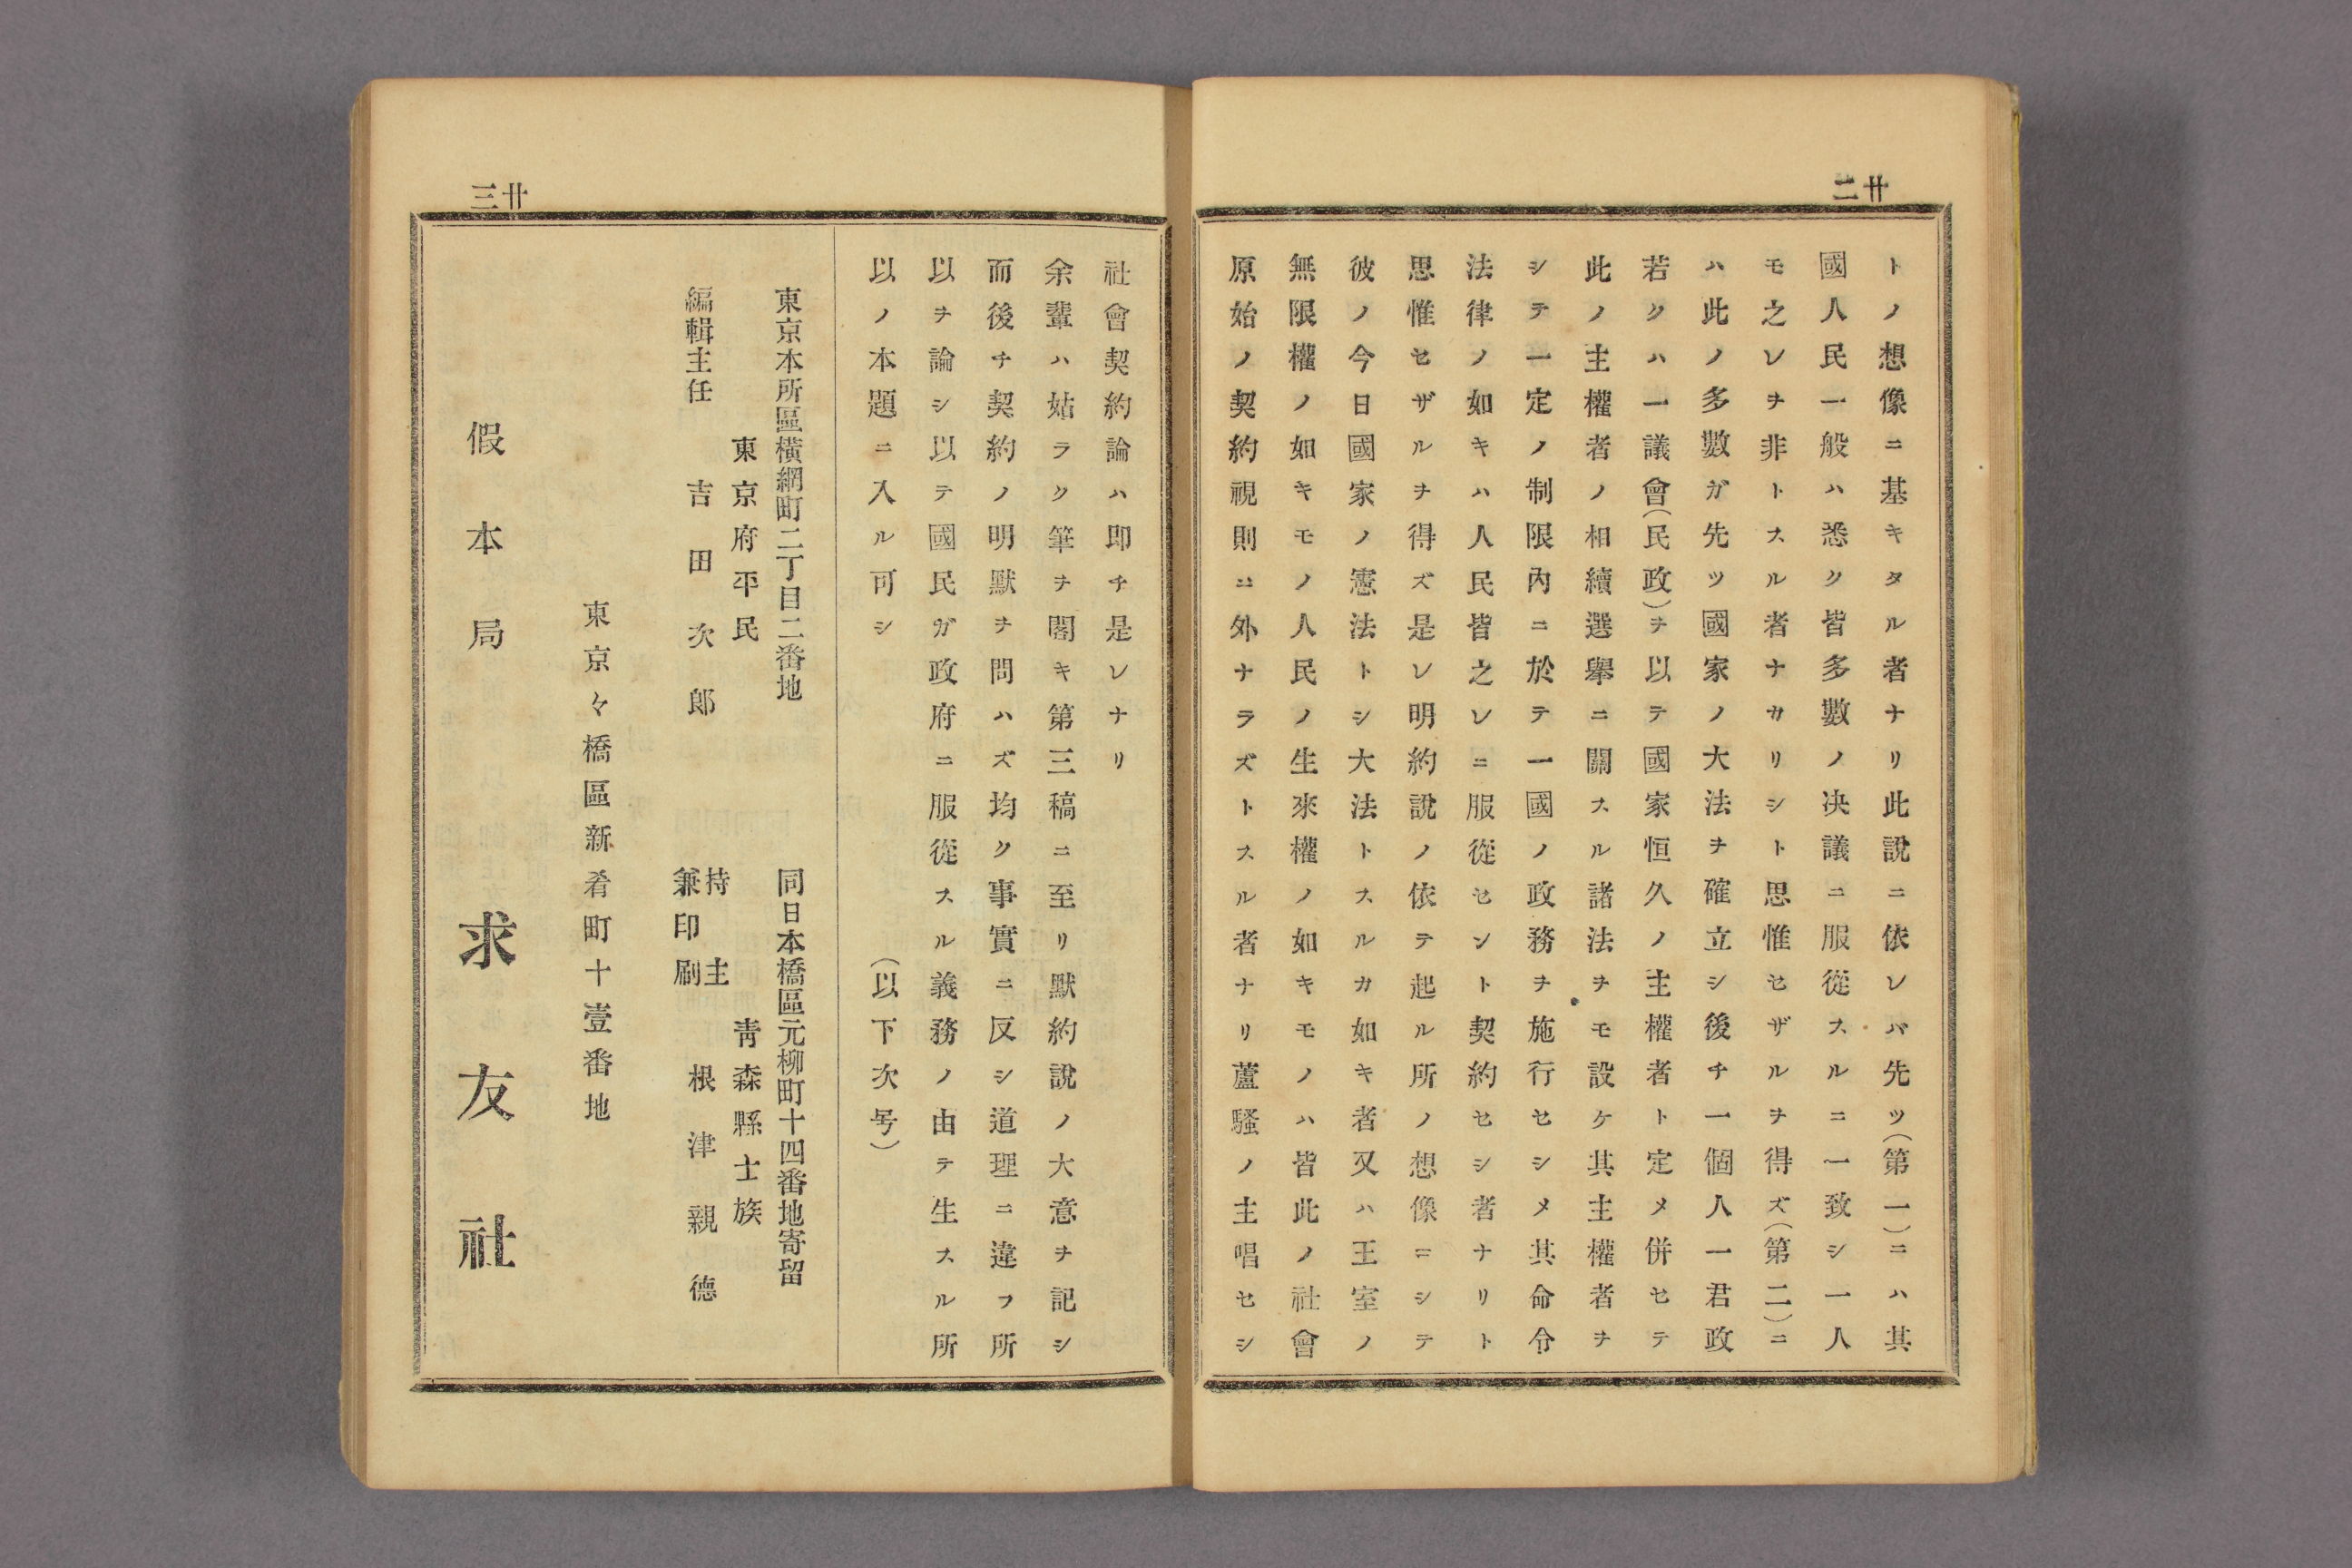 廿二
トノ想像ニ基キタル者ナリ此說ニ依レバ先ツ(第一)ニハ其
國人民一般ハ悉ク皆多數ノ決議ニ服從スルニ一致シ一人
モ之レヲ非トスル者ナカリシト思惟セザルヲ得ズ(第二)ニ
ハ此ノ多數ガ先ツ國家ノ大法ヲ確立シ後チ一個人一君政
若クハ一議會(民政)ヲ以テ國家恒久ノ主權者ト定メ併セテ
此ノ主權者ノ相續選擧ニ關スル諸法ヲモ設ケ其主權者ヲ
シテ一定ノ制限內ニ於テ一國ノ政務ヲ施行セシメ其命令
法律ノ如キハ人民皆之レニ服從セント契約セシ者ナリト
思惟セザルヲ得ズ是レ明約說ノ依テ起ル所ノ想像ニシテ
彼ノ今日國家ノ憲法トシ大法トスルカ如キ者又ハ王室ノ
無限權ノ如キモノ人民ノ生來權ノ如キモノハ皆此ノ社會
原始ノ契約視則ニ外ナラズトスル者ナリ蘆騷ノ主唱セシ
廿三
社會契約論ハ即チ是レナリ
余輩ハ姑ラク筆ヲ閣キ第三稿ニ至リ默約說ノ大意ヲ記シ
而後チ契約ノ明默ヲ問ハズ均ク事實ニ反シ道理ニ違フ所
以ヲ論シ以テ國民ガ政府ニ服從スル義務ノ由テ生スル所
以ノ本題ニ入ル可シ
(以下次号)
東京本所區橫網町二丁目二番地
東京府平民
編輯主任 吉田次郎
同日本橋區元柳町十四番地寄留
青森縣士族
持主
兼印刷 根津親德
東京々橋區新肴町十壹番地
假本局 求友社